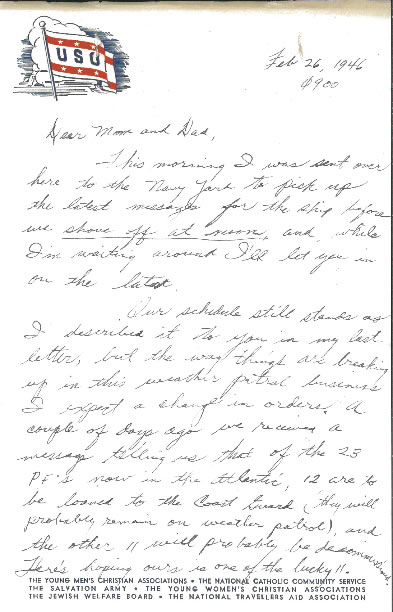 USO
Feb 26, 1946
0900
Dear Mom and Dad,
This morning I was sent over
here to the Navy Yard to pick up
the latest messages for the ship before
we shove off at noon, and, while
I'm waiting around I'll let you in
on the latest.
Our schedule still stands as
I described it to you in my last
letter, but the way things are breaking
up in this weather patrol business
I expect a change in orders. A
couple of days ago we received a
message telling us that of the 23
PF's now in the Atlantic, 12 are to
be loaned to the Coast Guard (they will
probably remain on weather patrol), and
the other 11 will probably be decommissioned.
Here's hoping ours is one of the lucky 11.
THE YOUNG MEN'S CHRISTIAN ASSOCIATIONS • THE NATIONAL CATHOLIC COMMUNITY SERVICE
THE SALVATION ARMY • THE YOUNG WOMEN'S CHRISTIAN ASSOCIATIONS
THE JEWISH WELFARE BOARD • THE NATIONAL TRAVELLERS AID ASSOCIATION